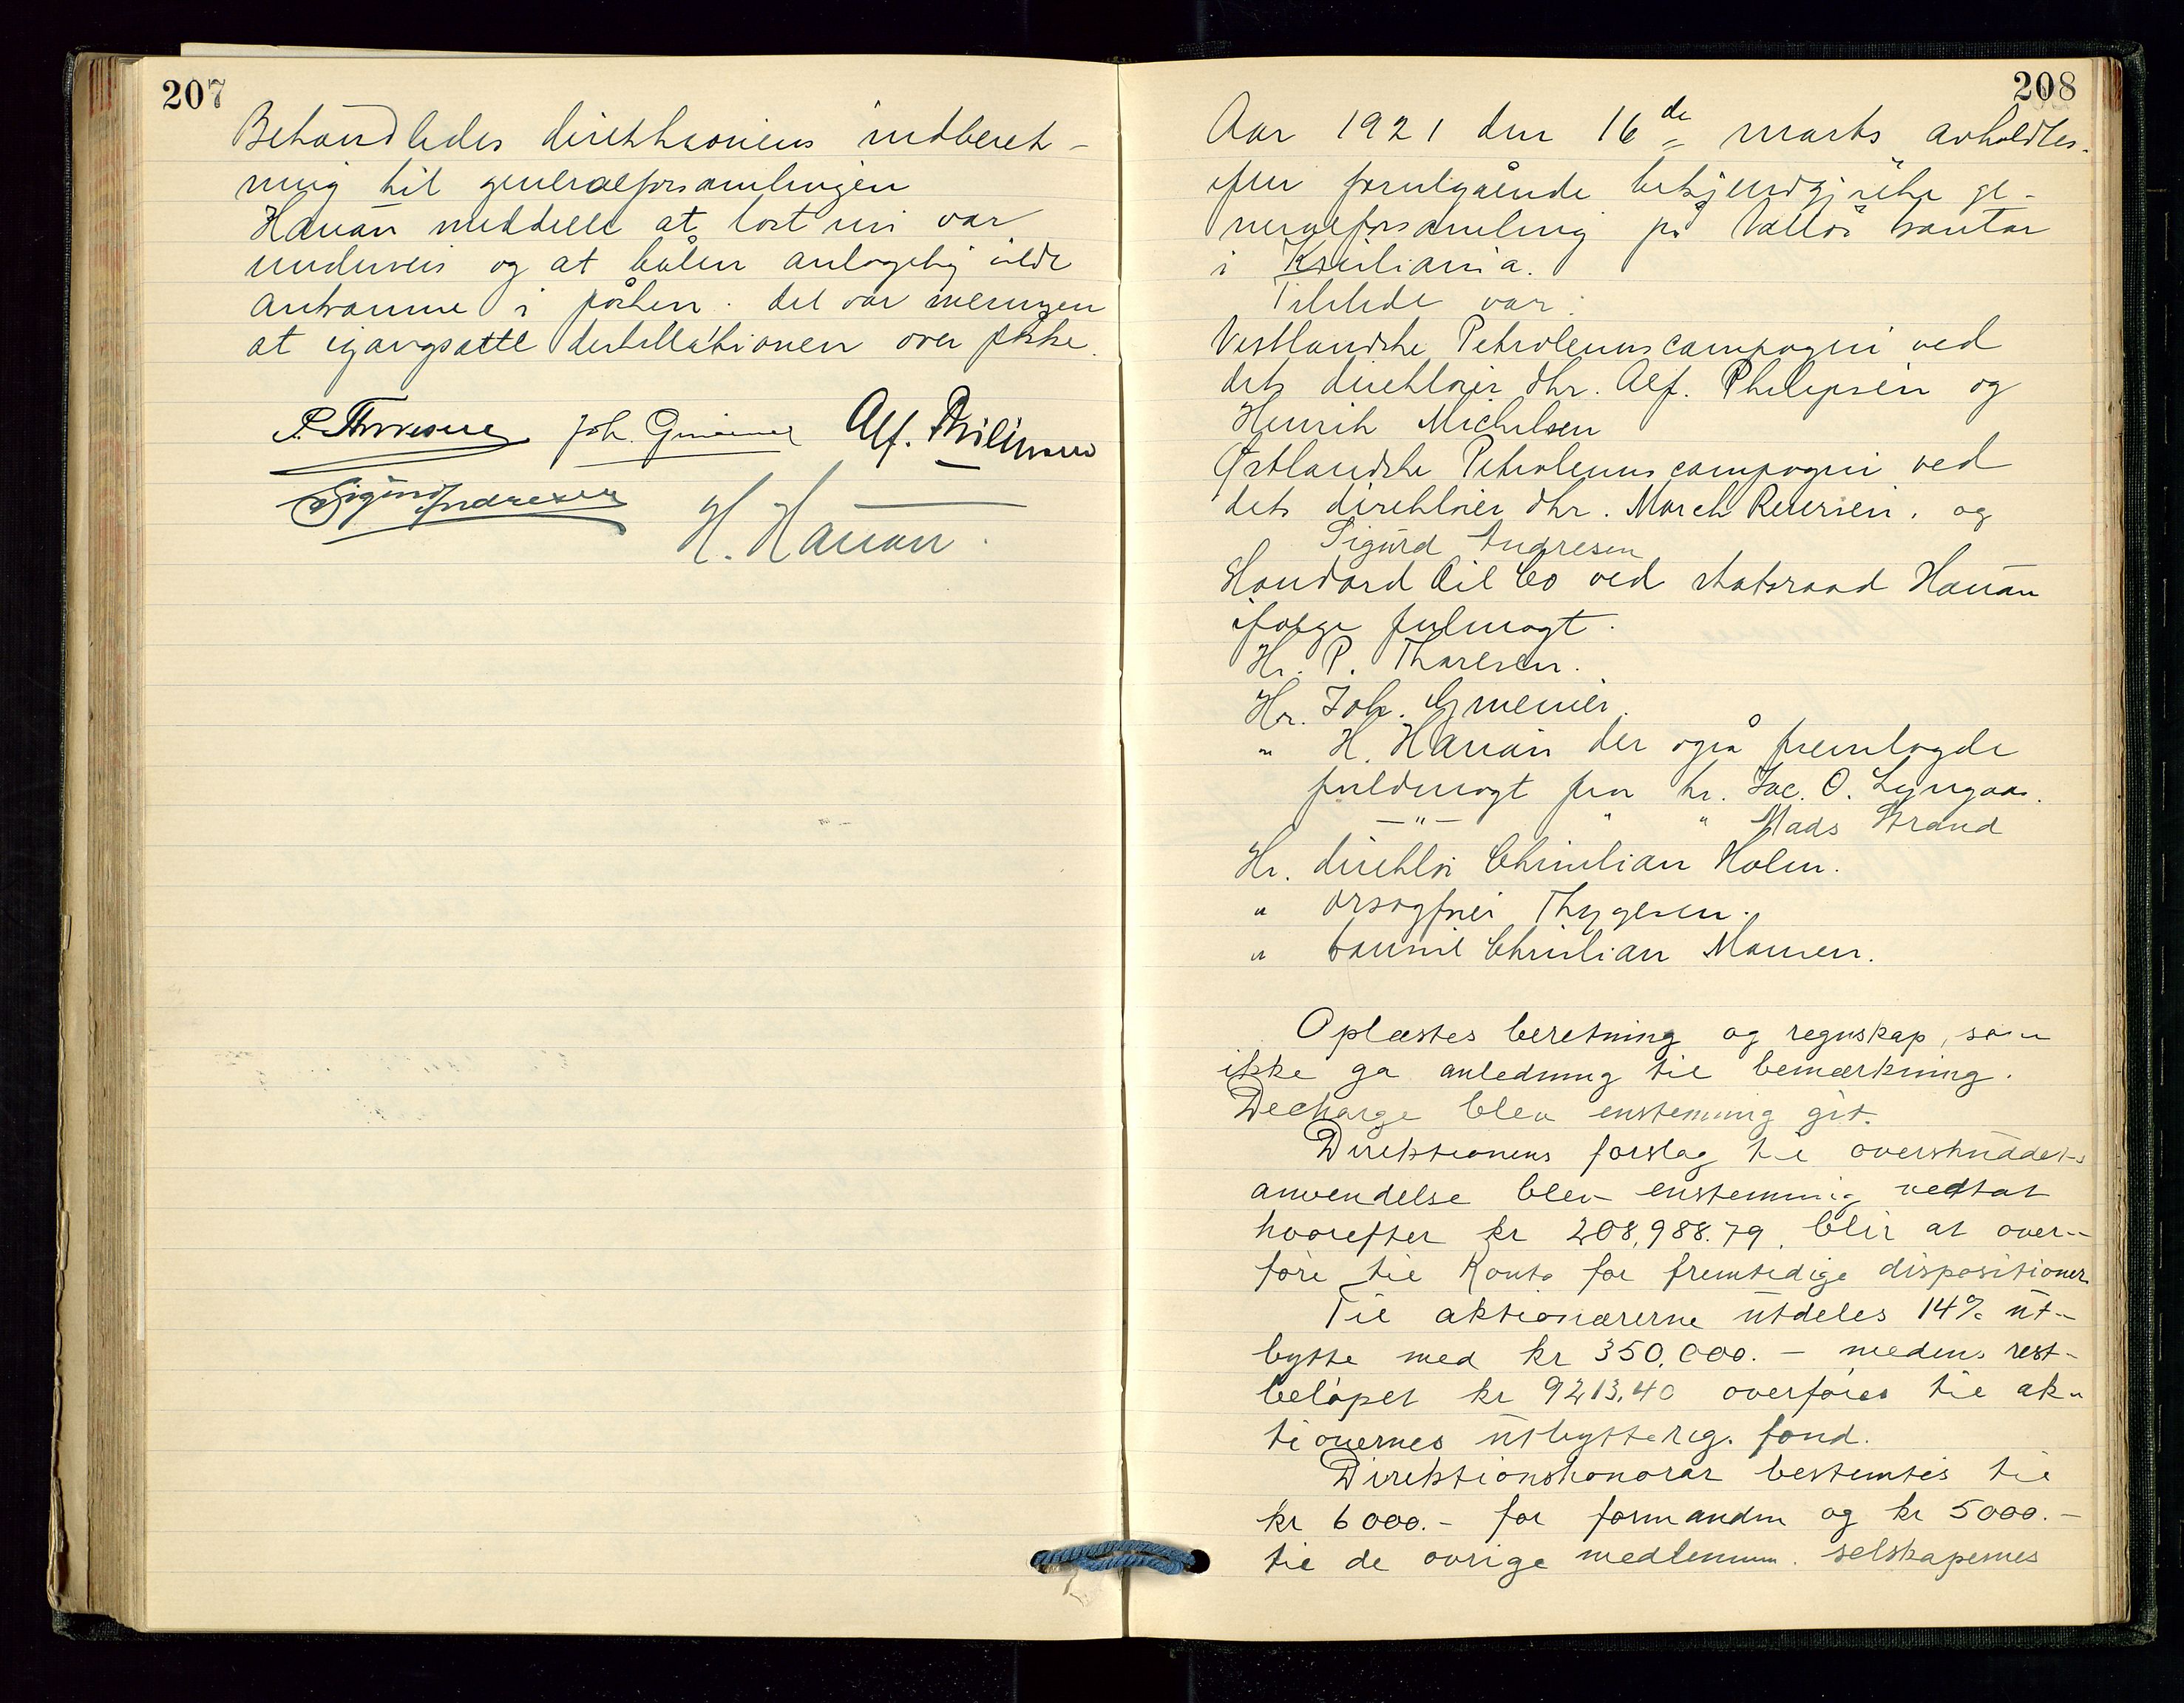 207
Behandledes direktionens indberet-
ning til generalforsamlingen
Hauan meddelte at last nu var
underveis og at båten antagelig vilde
ankomme i påsken. Det var meningen
at igangsætte destillationen over påske.
P. Thoresen Joh. Gmeiner Alf. Philipsen
Sigurd Andresen
H. Hauan.
208
Aar 1921 den 16de marts avholdtes.
efter forutgående bekjendtgjörelse ge-
neralforsamling på Vallö kontor
i Kristiania.
Tilstede var:
Vestlandske Petroleumscompagni ved
dets direktörer Hr. Alf. Philipsen og
Henrik Michelsen
Östlandske Petroleumscompagni ved
dets direktörer Hr. March Reiersen. og
Sigurd Andresen
Standard Oil Co ved statsraad Hauan
ifölge fulmagt.
Hr. P. Thoresen.
Hr. Joh. Gmeiner.
" H. Hauan der også fremlagde
fuldmagt fra hr. Jac. O. Lyngaas.
—"— " " Mads Strand
Hr. direktör Christian Holm.
" Thygesen.
" konsul Christian Mamen.
Oplæstes beretning og regnskap, som
ikke ga anledning til bemærkning.
Decharge blev enstemmig git.
Direktionens forslag til overskuddets
anvendelse blev enstemmig vedtat
hvorefter kr 208,988.79. blir at over-
före til Konto for fremtidige dispositioner
Til aktionærerne utdeles 14% ut-
bytte med kr 350,000.— medens rest-
belöpet kr 9213.40 overföres til ak-
tionernes utbyttereg. fond.
Direktionshonorar bestemtes til
kr 6000.- for formanden og kr 5000.—
til de övrige medlemmer. selskapernes